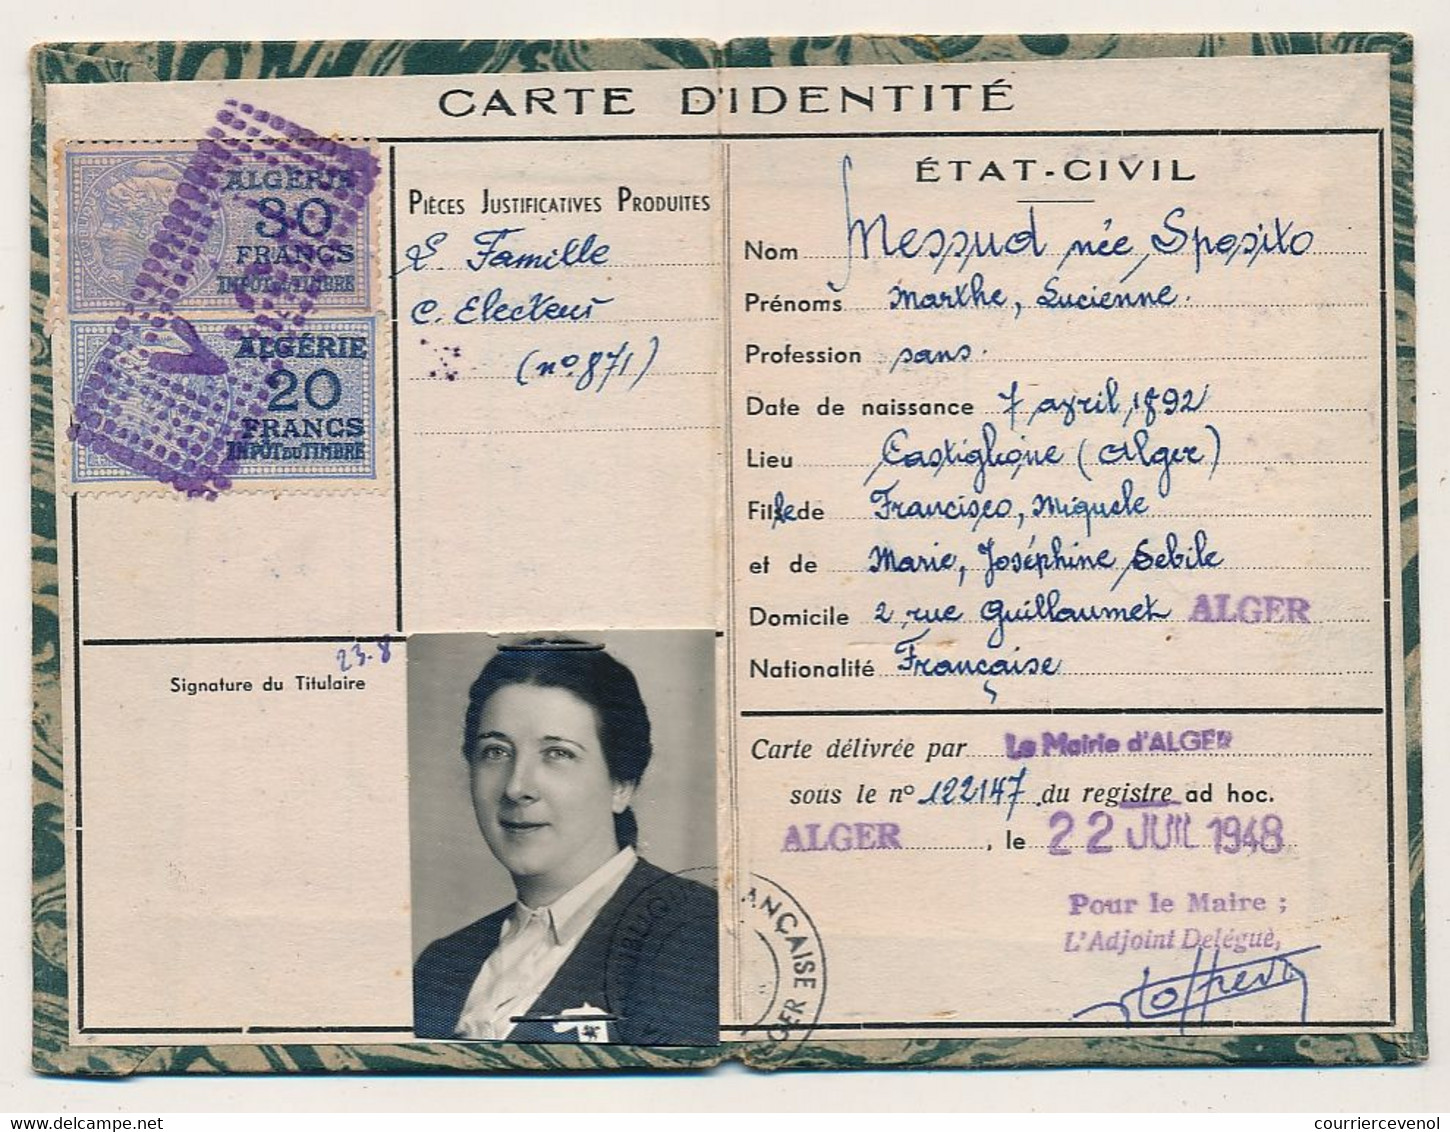 CARTE D'IDENTITÉ
ALGÉRIE
30
FRANCS
IMPOT DU TIMBRE
ALGÉRIE
20
FRANCS
IMPOT DU TIMBRE
PIÈCES JUSTIFICATIVES PRODUITES
L. Famille
C. Electeur
(nº 871)
23-8
Signature du Titulaire
ÉTAT-CIVIL
Nom Messud née Sposito
Prénoms Marthe, Lucienne.
Profession sans.
Date de naissance 7 avril 1892
Lieu Castiglione (Alger)
Fille de Francisco, Miquele
et de Marie, Joséphine Sebile
Domicile 2 rue Guillaumet ALGER
Nationalité Française
Carte délivrée par La Mairie d'ALGER
sous le nº 122147 du registre ad hoc.
ALGER, le 22 JUIL 1948
Pour le Maire ;
L'Adjoint Delégué,
PUBLIQUE FRANÇAISE
ALGER
courriercevenol